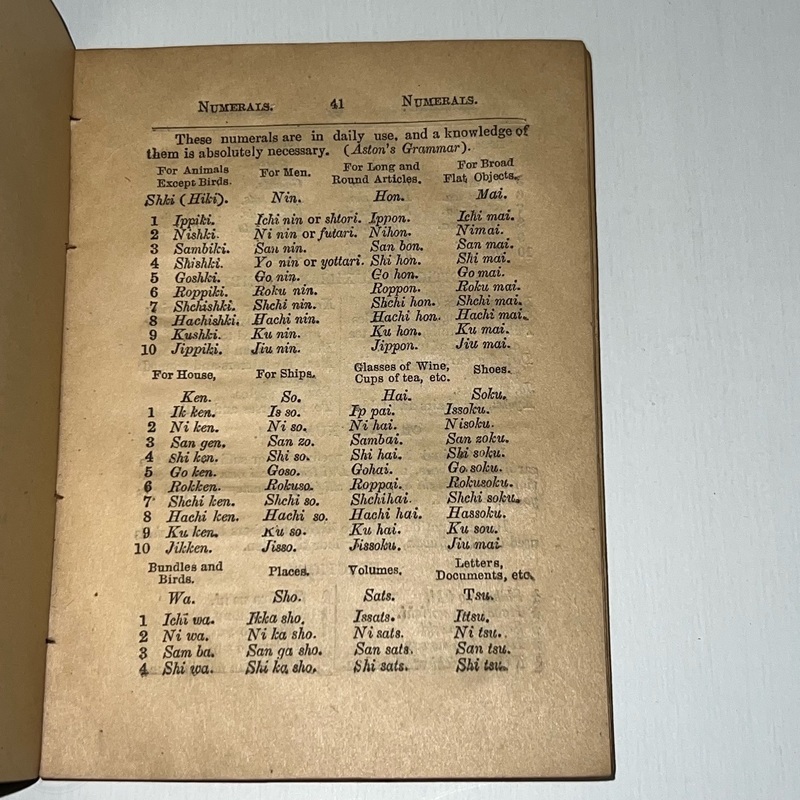 NUMERALS. 41 NUMERALS.
These numerals are in daily use, and a knowledge of
them is absolutely necessary. (Aston's Grammar).
For Animals For Men. For Long and For Broad
Except Birds. Round Articles. Flat Objects.
Shki (Hiki). Nin. Hon. Mai.
1 Ippiki. Ichi nin or shtori. Ippon. Ichi mai.
2 Nishki. Ni nin or futari. Nihon. Nimai.
3 Sambiki. San nin. San bon. San mai.
4 Shishki. Yo nin or yottari. Shi hon. Shi mai.
5 Goshki. Go nin. Go hon. Go mai.
6 Roppiki. Roku nin. Roppon. Roku mai.
7 Shchishki. Shchi nin. Shchi hon. Shchi mai.
8 Hachishki. Hachi nin. Hachi hon. Hachi mai.
9 Kushki. Ku nin. Ku hon. Ku mai.
10 Jippiki. Jiu nin. Jippon. Jiu mai.
For House, For Ships. Glasses of Wine, Shoes.
Cups of tea, etc.
Ken. So. Hai. Soku.
1 Ik ken. Is so. Ip pai. Issoku.
2 Ni ken. Ni so. Ni hai. Nisoku.
3 San gen. San zo. Sambai. San zoku.
4 Shi ken. Shi so. Shi hai. Shi soku.
5 Go ken. Goso. Gohai. Go soku.
6 Rokken. Rokuso. Roppai. Rokusoku.
7 Shchi ken. Shchi so. Shchihai. Shchi soku.
8 Hachi ken. Hachi so. Hachi hai. Hassoku.
9 Ku ken. Ku so. Ku hai. Ku sou.
10 Jikken. Jisso. Jissoku. Jiu mai
Bundles and Places. Volumes. Letters,
Birds. Documents, etc.
Wa. Sho. Sats. Tsu.
1 Ichi wa. Ikka sho. Issats. Ittsu.
2 Ni wa. Ni ka sho. Ni sats. Ni tsu.
3 Sam ba. San ga sho. San sats. San tsu.
4 Shi wa. Shi ka sho. Shi sats. Shi tsu.